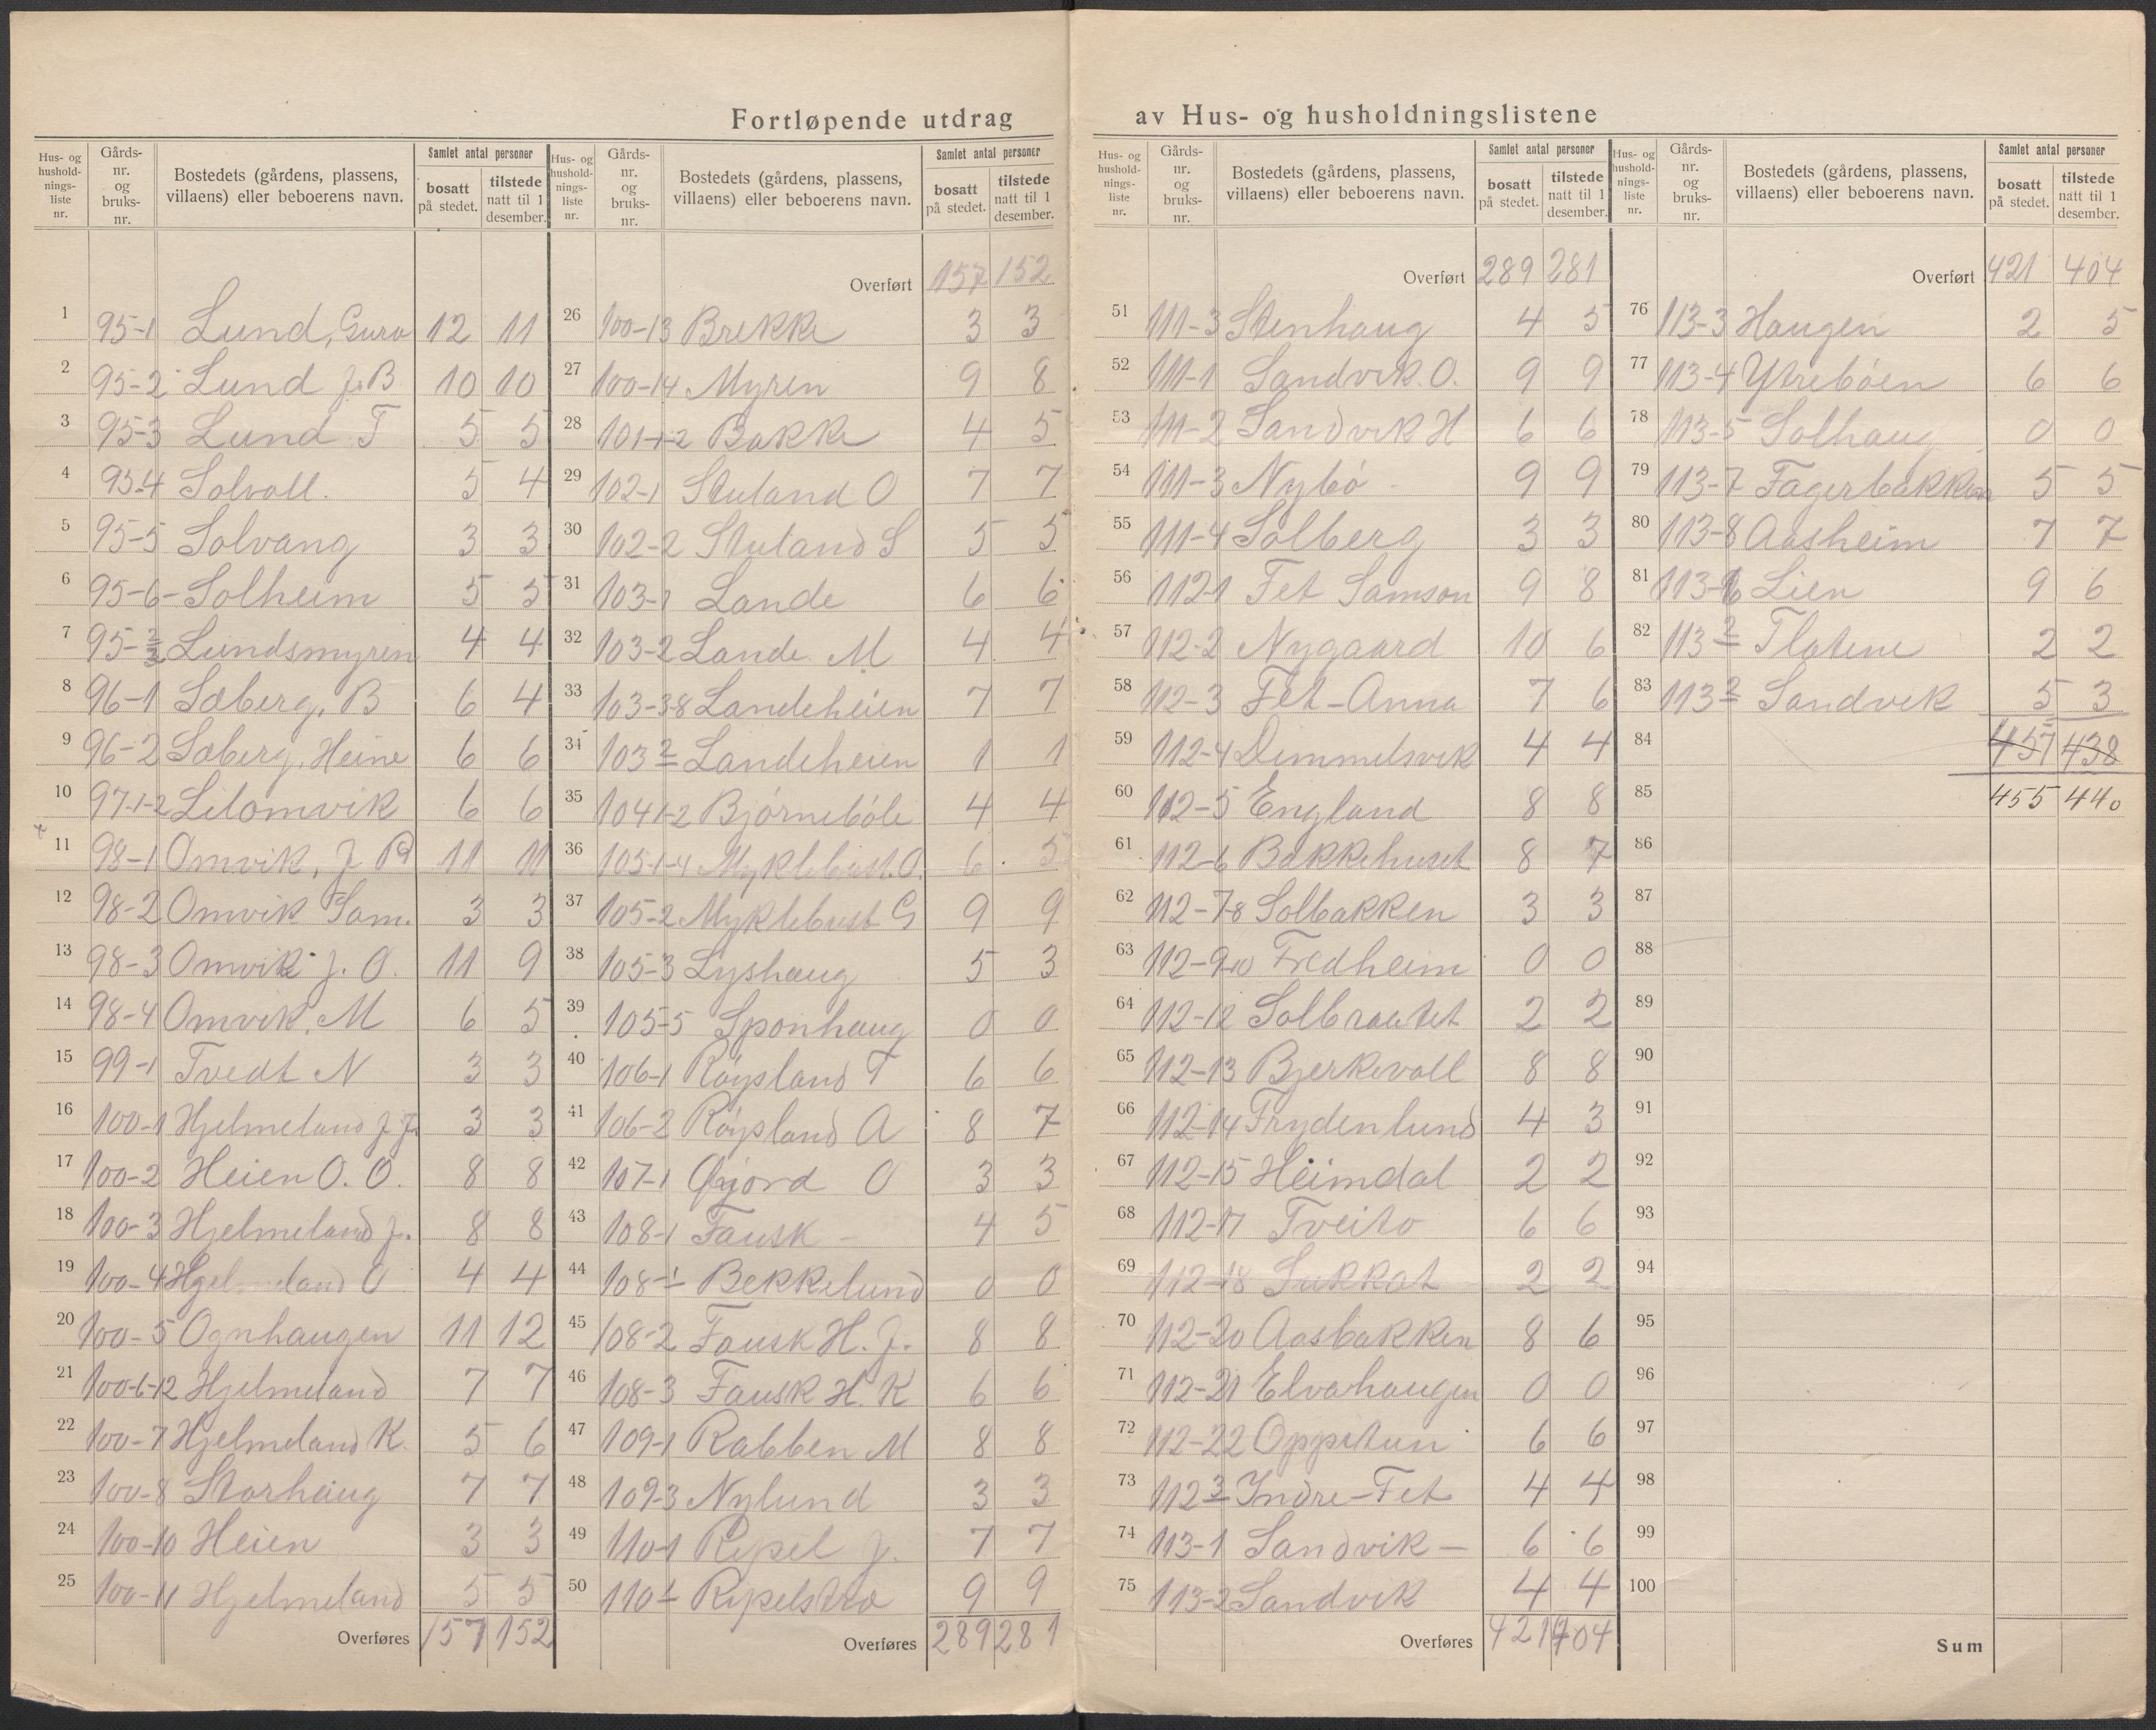 Fortløpende utdrag av Hus- og husholdningslistene
Hus- og husholdningsliste nr. | Gårds-nr. og bruks-nr. | Bostedets (gårdens, plassens, villaens) eller beboerens navn. | Samlet antal personer bosatt på stedet. | tilstede natt til 1 desember.
1 95-1 Lund, Guro 12 11
2 95-2 Lund J. B 10 10
3 95-3 Lund T 5 5
4 95-4 Solvoll. 5 4
5 95-5 Solvang 3 3
6 95-6- Solheim 5 5
7 95-2/3 Lundsmyren 4 4
8 96-1 Sæberg, B 6 4
9 96-2 Sæberg, Heine 6 6
10 97-1-2 Litomvik 6 6
11 98-1 Omvik, J 11 11
12 98-2 Omvik Sam. 3 3
13 98-3 Omvik J. O. 11 9
14 98-4 Omvik, M 6 5
15 99-1 Tvedt N 3 3
16 100-1 Hjelmeland J. J. 3 3
17 100-2 Heien O. O. 8 8
18 100-3 Hjelmeland J. 8 8
19 100-4 Hjelmeland O 4 4
20 100-5 Ognhaugen 11 12
21 100-6-12 Hjelmeland 7 7
22 100-7 Hjelmeland K. 5 6
23 100-8 Storhaug 7 7
24 100-10 Heien 3 3
25 100-11 Hjelmeland 5 5
Overføres 157 152
Hus- og husholdningsliste nr. | Gårds-nr. og bruks-nr. | Bostedets (gårdens, plassens, villaens) eller beboerens navn. | Samlet antal personer bosatt på stedet. | tilstede natt til 1 desember.
Overført 157 152
26 100-13 Brekke 3 3
27 100-14 Myren 9 8
28 101-1-2 Bakke 4 5
29 102-1 Stuland O 7 7
30 102-2 Stuland S 5 5
31 103-1 Lande 6 6
32 103-2 Lande M 4 4
33 103-3-8 Landeheien 7 7
34 103 2 Landeheien 1 1
35 104 1-2 Bjørnebøle 4 4
36 105-1-4 Myklebust. O. 6 5
37 105-2 Myklebust G 9 9
38 105-3 Lyshaug 5 3
39 105-5 Sponhaug 0 0
40 106-1 Røysland T 6 6
41 106-2 Røysland A 8 7
42 107-1 Øijord O 3 3
43 108-1 Fausk - 4 5
44 108-1 Bekkelund 0 0
45 108-2 Fausk H. J. 8 8
46 108-3 Fausk H. K 6 6
47 109-1 Rabben M 8 8
48 109-3 Nylund 3 3
49 110-1 Rypel J. 7 7
50 110 1 Rypelstrø 9 9
Overføres 289 281
Hus- og husholdningsliste nr. | Gårds-nr. og bruks-nr. | Bostedets (gårdens, plassens, villaens) eller beboerens navn. | Samlet antal personer bosatt på stedet. | tilstede natt til 1 desember.
Overført 289 281
51 111-3 Stenhaug 4 5
52 111-1 Sandvik. O. 9 9
53 111-2 Sandvik H 6 6
54 111-3 Nybø - 9 9
55 111-4 Solberg 3 3
56 112-1 Fet Samson 9 8
57 112-2 Nygaard 10 6
58 112-3 Fet - Anna 7 6
59 112-4 Dimmelsvik 4 4
60 112-5 England 8 8
61 112-6 Bakkehuset 8 7
62 112-7-8 Solbakken 3 3
63 112-9-10 Fredheim 0 0
64 112-12 Solbrautet 2 2
65 112-13 Bjerkevoll 8 8
66 112-14 Frydenlund 4 3
67 112-15 Heimdal 2 2
68 112-17 Tveito 6 6
69 112-18 Sukkat 2 2
70 112-20 Aasbakken 8 6
71 112-21 Elvahaugen 0 0
72 112-22 Oppstun 6 6
73 112 3 Indre-Fet 4 4
74 113-1 Sandvik - 6 6
75 113-2 Sandvik 4 4
Overføres 421 404
Hus- og husholdningsliste nr. | Gårds-nr. og bruks-nr. | Bostedets (gårdens, plassens, villaens) eller beboerens navn. | Samlet antal personer bosatt på stedet. | tilstede natt til 1 desember.
Overført 421 404
76 113-3 Haugen 2 5
77 113-4 Ytrebøen 6 6
78 113-5 Solhaug 0 0
79 113-7 Fagerbakken 5 5
80 113-8 Aasheim 7 7
81 113-6 Lien 9 6
82 113 2 Flatene 2 2
83 113 2 Sandvik 5 3
84 457 438
85 455 440
86
87
88
89
90
91
92
93
94
95
96
97
98
99
100
Sum